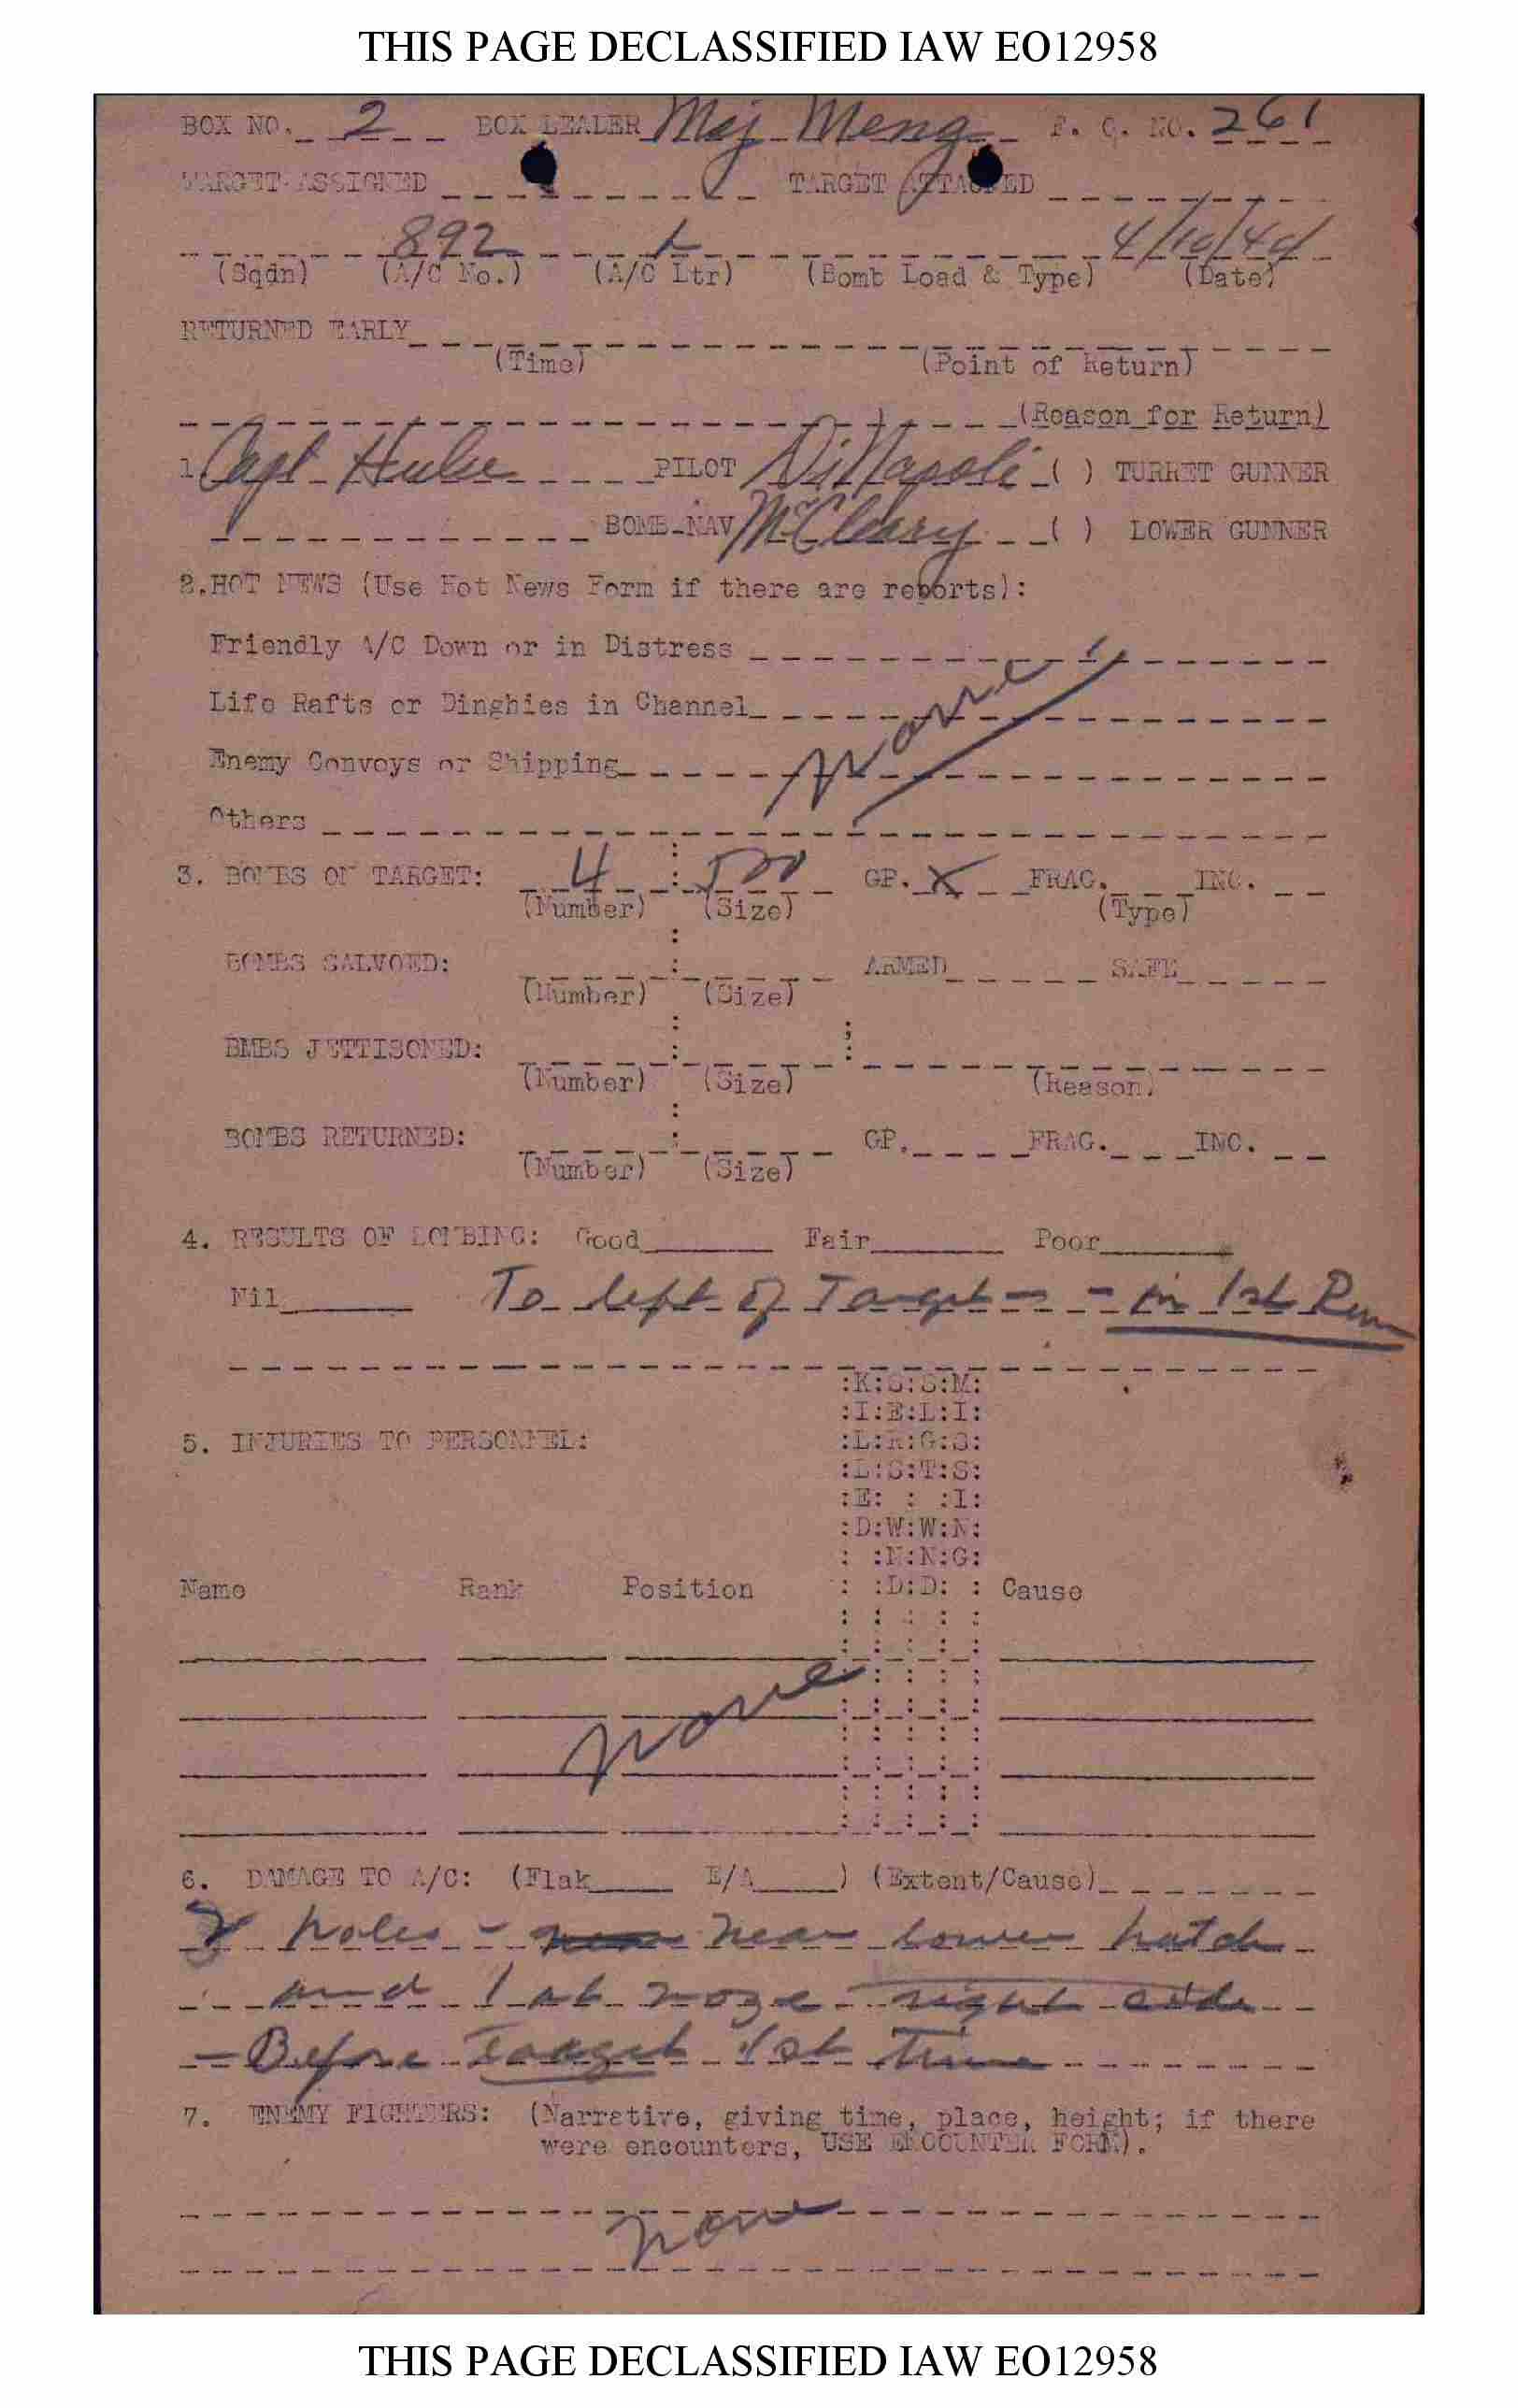 THIS PAGE DECLASSIFIED IAW EO12958
BOX NO. 2 BOX LEADER Maj Meng F. O. NO. 261
TARGET ASSIGNED TARGET ATTACKED
892 L 4/10/44
(Sqdn) (A/C No.) (A/C Ltr) (Bomb Load & Type) (Date)
RETURNED EARLY
(Time) (Point of Return)
(Reason for Return)
1. Capt Hulse PILOT DiNapoli ( ) TURRET GUNNER
BOMB-NAV McCleary ( ) LOWER GUNNER
2.HOT NEWS (Use Hot News Form if there are reports):
Friendly A/C Down or in Distress
Life Rafts or Dinghies in Channel
None
Enemy Convoys or Shipping
Others
3. BOMBS ON TARGET: 4 : 500 GP. X FRAG. INC.
(Number) (Size) (Type)
BOMBS SALVOED: ARMED SAFE
(Number) (Size)
BMBS JETTISONED:
(Number) (Size) (Reason)
BOMBS RETURNED: GP. FRAG. INC.
(Number) (Size)
4. RESULTS OF BOMBING: Good Fair Poor
Nil To left of Target - - on 1st Run
:K:S:S:M:
:I:E:L:I:
5. INJURIES TO PERSONNEL: :L:R:G:S:
:L:S:T:S:
:E: : :I:
:D:W:W:N:
: :N:N:G:
Name Rank Position : :D:D: : Cause
None
6. DAMAGE TO A/C: (Flak E/A ) (Extent/Cause)
holes - near lower hatch
and 1 at noze right side
- Before Target 1st Time
7. ENEMY FIGHTERS: (Narrative, giving time, place, height; if there
were encounters, USE ENCOUNTER FORM).
None
THIS PAGE DECLASSIFIED IAW EO12958